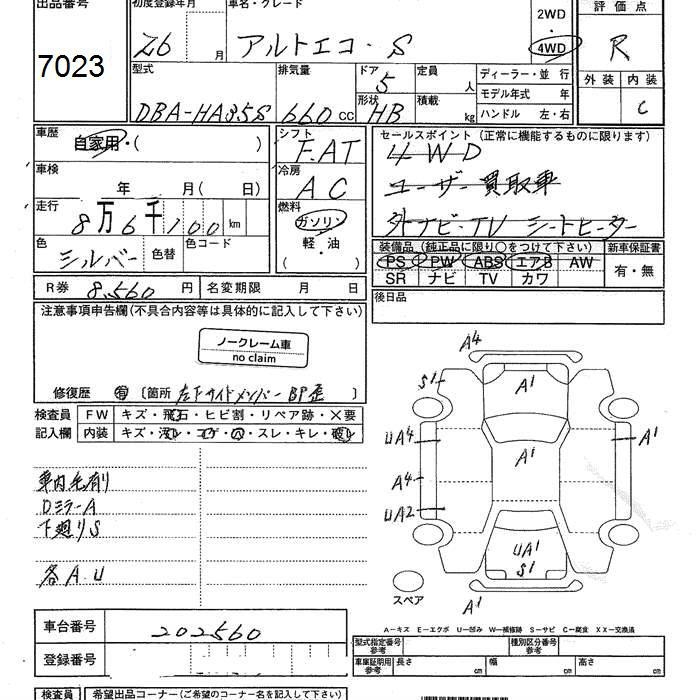 出品番号 初度登録年月 車名・グレード 2WD ・ 4WD 評価点
7023 26 年 月 アルトエコ・S R
型式 排気量 ドア 5 定員 人 ディーラー・並行 外装 内装
モデル年式 年
DBA-HA35S 660 CC 形状 HB 積載 kg ハンドル 左・右 C
車歴 自家用・( ) シフト F.AT セールスポイント(正常に機能するものに限ります)
4WD
車検 年 月( 日) 冷房 AC ユーザー買取車
走行 8万6千100 km 燃料 ガソリン・軽・油 外ナビ・TV シートヒーター
色 シルバー 色替 色コード 装備品(純正品に限り○をつけて下さい) 新車保証書
PS PW ABS エアB AW 有・無
SR ナビ TV カワ
R券 8,560 円 名変期限 月 日 後日品
注意事項申告欄(不具合内容等は具体的に記入して下さい)
ノークレーム車
no claim
修復歴 有 [箇所 左下サイドメンバーBP歪 ]
検査員 FW キズ・飛石・ヒビ割・リペア跡・X要
記入欄 内装 キズ・汚レ・コゲ・穴・スレ・キレ・破レ
A4
S1 A1
UA4 A1 A1
A4
UA2
UA1
S1
A1
スペア
車内毛有り
DミラーA
下廻りS
各A.U
A-キズ E-エクボ U-凹み W-補修跡 S-サビ C-腐食 XX-交換済
車台番号 202560 型式指定番号 参考 種別区分番号 参考
登録番号 車庫証明用 参考 長さ cm 幅 cm 高さ cm
検査員 希望出品コーナー(ご希望のコーナー名を記入して下さい)